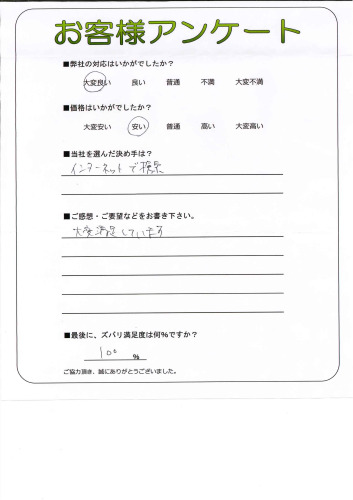 お客様アンケート
■弊社の対応はいかがでしたか？
大変良い 良い 普通 不満 大変不満
■価格はいかがでしたか？
大変安い 安い 普通 高い 大変高い
■当社を選んだ決め手は？
インターネットで検索
■ご感想・ご要望などをお書き下さい。
大変満足しています
■最後に、ズバリ満足度は何％ですか？
100 ％
ご協力頂き、誠にありがとうございました。